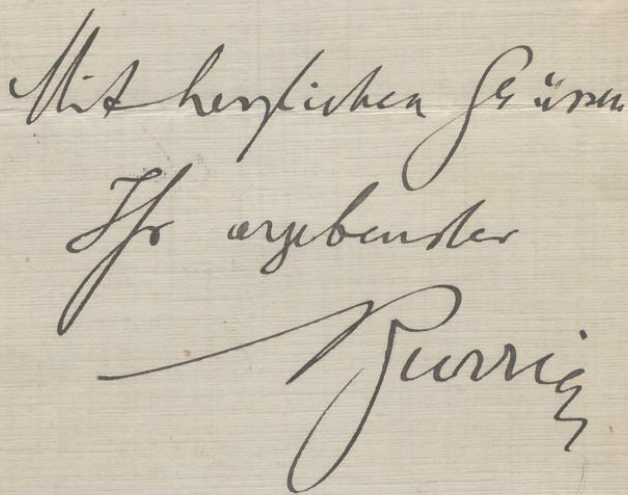 Mit herzlichen Grüssen
Ihr ergebenster